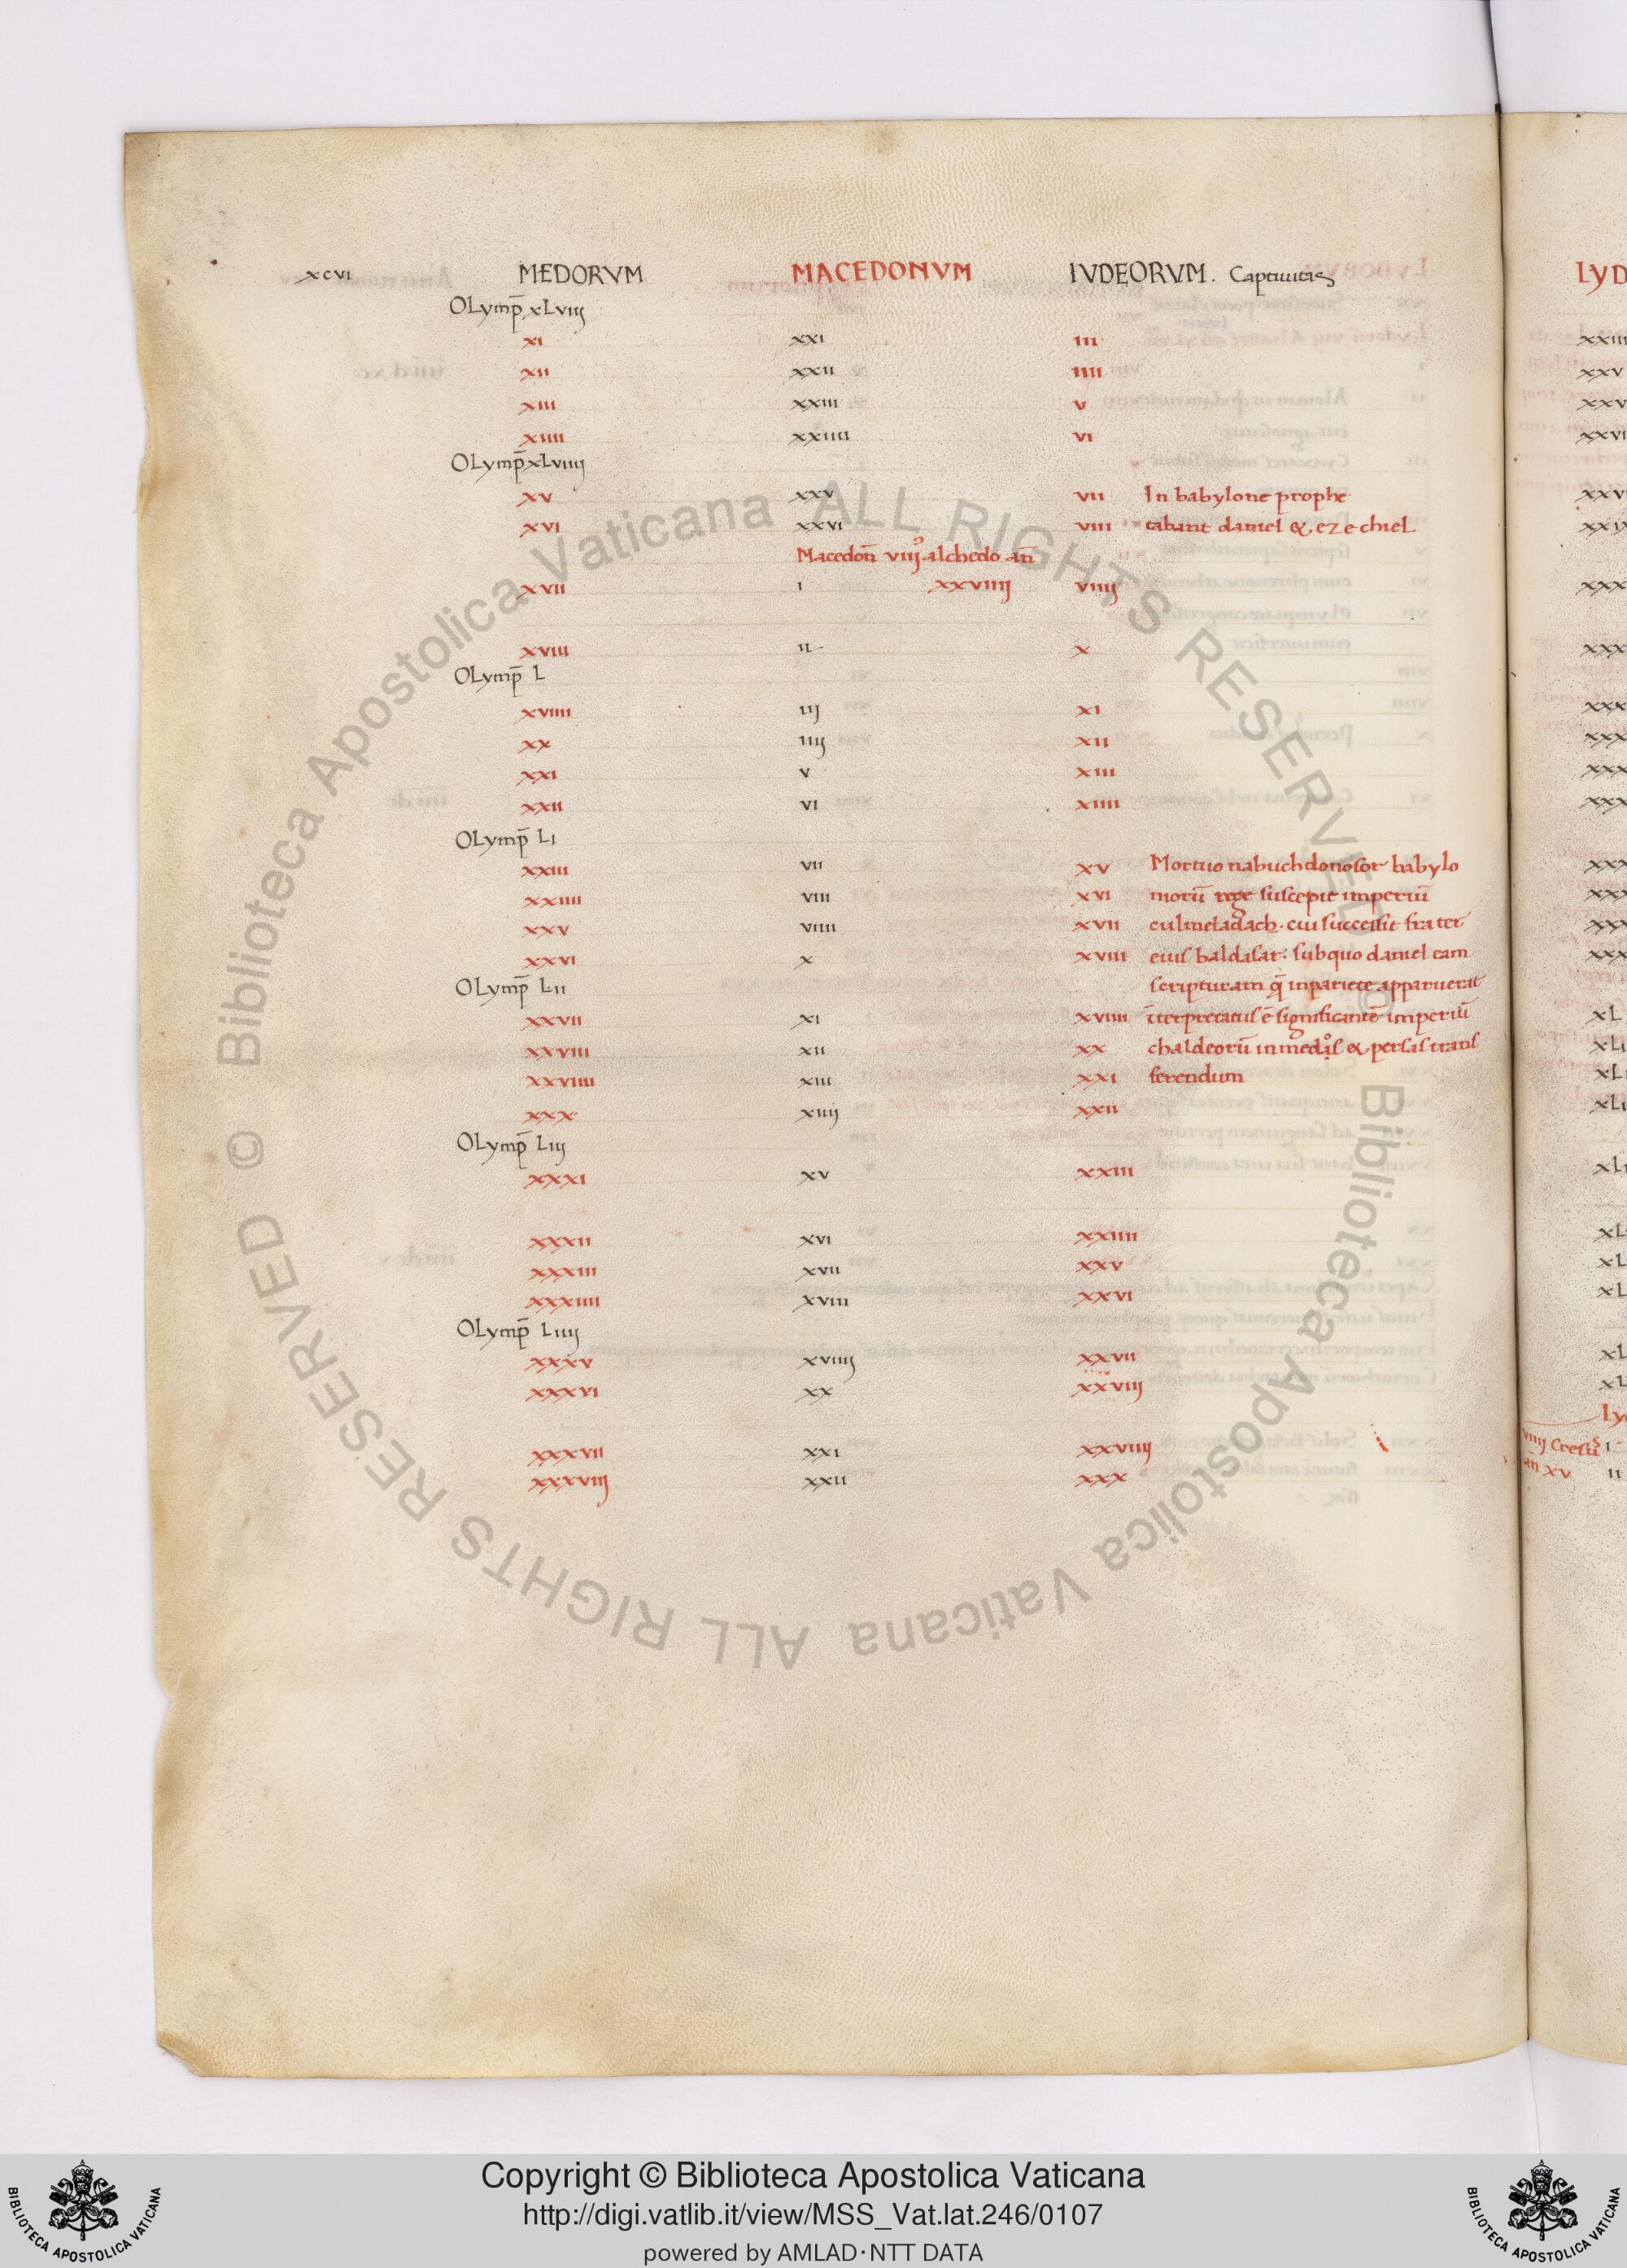 xcvi MEDORVM MACEDONVM IVDEORVM. Captiuitas LYD
OLymp̄ xLviij
xi xxi iii xxiii
xii xxii iiii xxv
xiii xxiii v xxv
xiiii xxiiii vi xxvi
OLymp̄ xLviiij
xv xxv vii In babylone prophe xxvi
xvi xxvi viii tabant daniel &. ezechiel xxix
Macedon̄ viij.º alchedo an̄
xvii i xxviiij viiij xxx
xviii ii x xxx
OLymp̄ L
xviiii iij xi xxx
xx iiij xii xxx
xxi v xiii xxx
xxii vi xiiii xxx
OLymp̄ Li
xxiii vii xv Mortuo nabuchdonosor babylo xxx
xxiiii viii xvi niorū rege suscepit imperiū xxx
xxv viiii xvii euilmeladach. cui successit frater xxx
xxvi x xviii eius baldasar: sub quo daniel eam xxx
OLymp̄ Lii scripturam q̄ in pariete apparuerat
xxvii xi xviiii īterpretatus ē significantē imperiū xL
xxviii xii xx chaldeorū in medos & persas trans xLi
xxviiii xiii xxi ferendum xLi
xxx xiiij xxii xLi
OLymp̄ Liij
xxxi xv xxiii xLi
xxxii xvi xxiiii xL
xxxiii xvii xxv xL
xxxiiii xviii xxvi xL
OLymp̄ Liiij
xxxv xviiij xxvii xL
xxxvi xx xxviij xL
Ly
xxxvii xxi xxviiij viiij Cresus i
xxxviij xxii xxx an̄ xv ii
© Biblioteca Apostolica Vaticana ALL RIGHTS RESERVED © Biblioteca Apostolica Vaticana ALL RIGHTS RESERVED
Copyright © Biblioteca Apostolica Vaticana
http://digi.vatlib.it/view/MSS_Vat.lat.246/0107
powered by AMLAD·NTT DATA
BIBLIOTECA APOSTOLICA VATICANA
BIBLIOTECA APOSTOLICA VATICANA